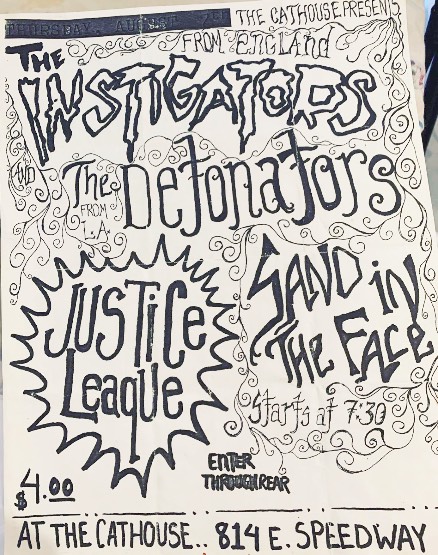 THURSDAY, AUGUST
THE CATHOUSE PRESENTS
FROM ENGLAND
THE
INSTIGATORS
AND
The
FROM
L.A.
DeTonaTors
JUSTiCe
League
SAND iN
THE FACE
Starts at 7:30
ENTER
THROUGH REAR
$4.00
AT THE CATHOUSE.. 814 E. SPEEDWAY